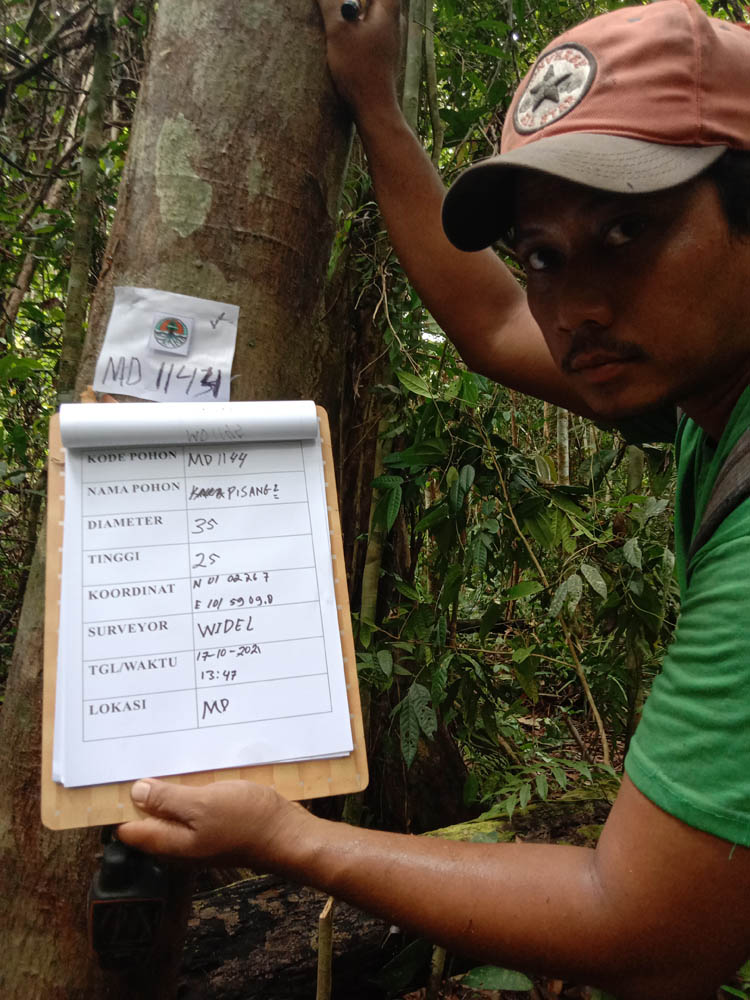 MD 1143
KODE POHON MD 1144
NAMA POHON PISANG2
DIAMETER 35
TINGGI 25
KOORDINAT N 01 02 26 7
E 101 59 09.8
SURVEYOR WIDEL
TGL/WAKTU 17-10-2021
13:47
LOKASI MD